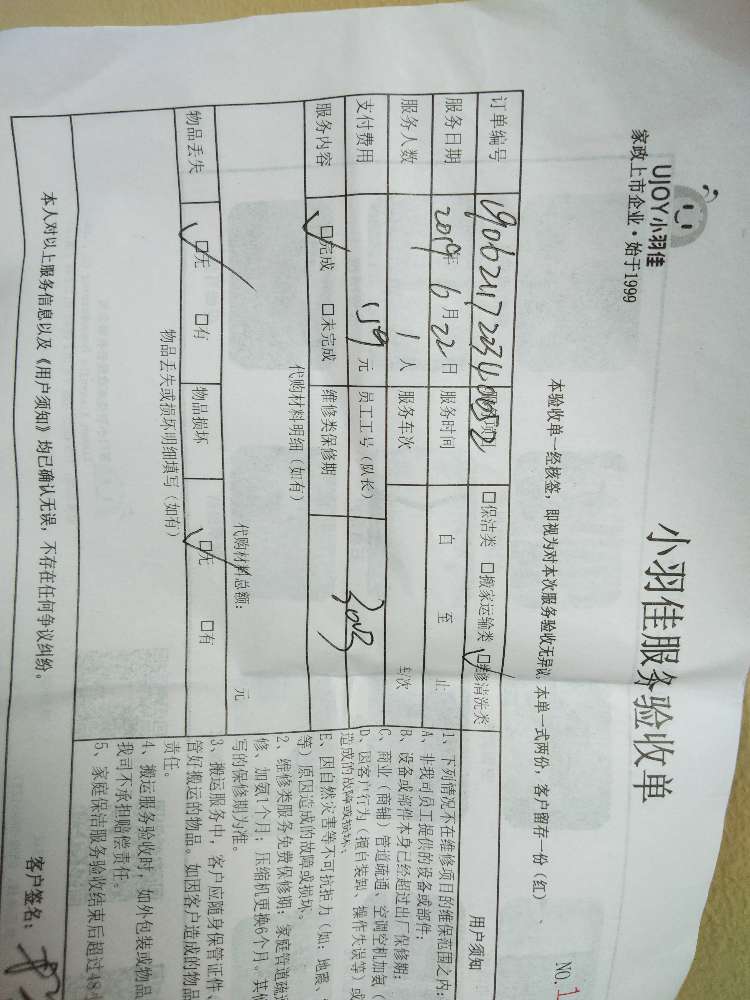 UJOY小羽佳
家政上市企业·始于1999
小羽佳服务验收单
本验收单一经核签，即视为对本次服务验收无异议 本单一式两份，客户留存一份（红）、
NO.1
订单编号 □保洁类 □搬家运输类 □维修清洗类
服务日期 2019年 6月22日 服务时间 自 至 止
服务人数 1人 服务车次 车次
支付费用 元 员工工号（队长） 3003
服务内容 □完成 □未完成 维修类保修期
代购材料明细（如有）
代购材料总额： 元
物品丢失 □无 □有 物品损坏 □无 □有
物品丢失或损坏明细填写（如有）
本人对以上服务信息以及《用户须知》均已确认无误，不存在任何争议纠纷。
用户须知
1、下列情况不在维修项目的维保范围之内：
A、非我司员工提供的设备或部件；
B、设备或部件本身已经超过出厂保修期；
C、商业（商铺）管道疏通、空调空机加氨（
D、因客户行为（擅自装卸、操作失误等）或
造成的故障或损坏、
E、因自然灾害等不可抗拒力（如：地震、
等）原因造成的故障或损坏。
2、维修类服务免费保修期：家庭管道疏
修、加氨1个月；压缩机更换6个月。其
写的保修期为准。
3、搬运服务中，客户应随身保管证件、
管好搬运的物品。如因客户造成的物品
责任。
4、搬运服务验收时，如外包装或物品
我司不承担赔偿责任。
5、家庭保洁服务验收结束后超过48
客户签名：